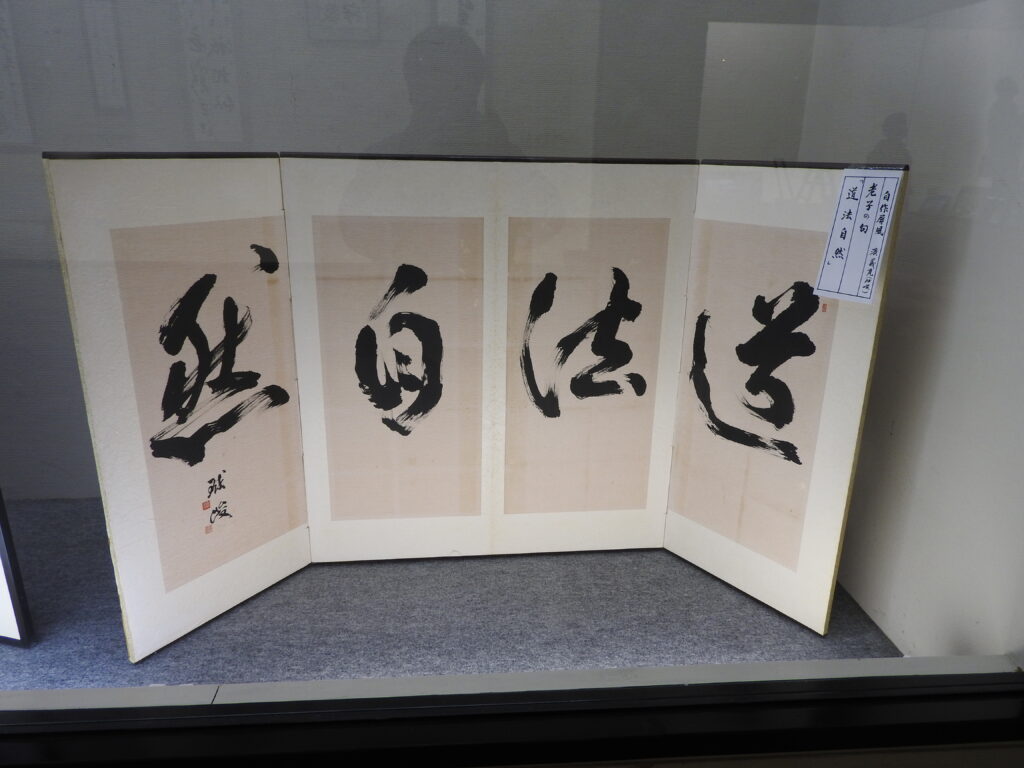 道法自然
自作屏風
老子の句
「道法自然」